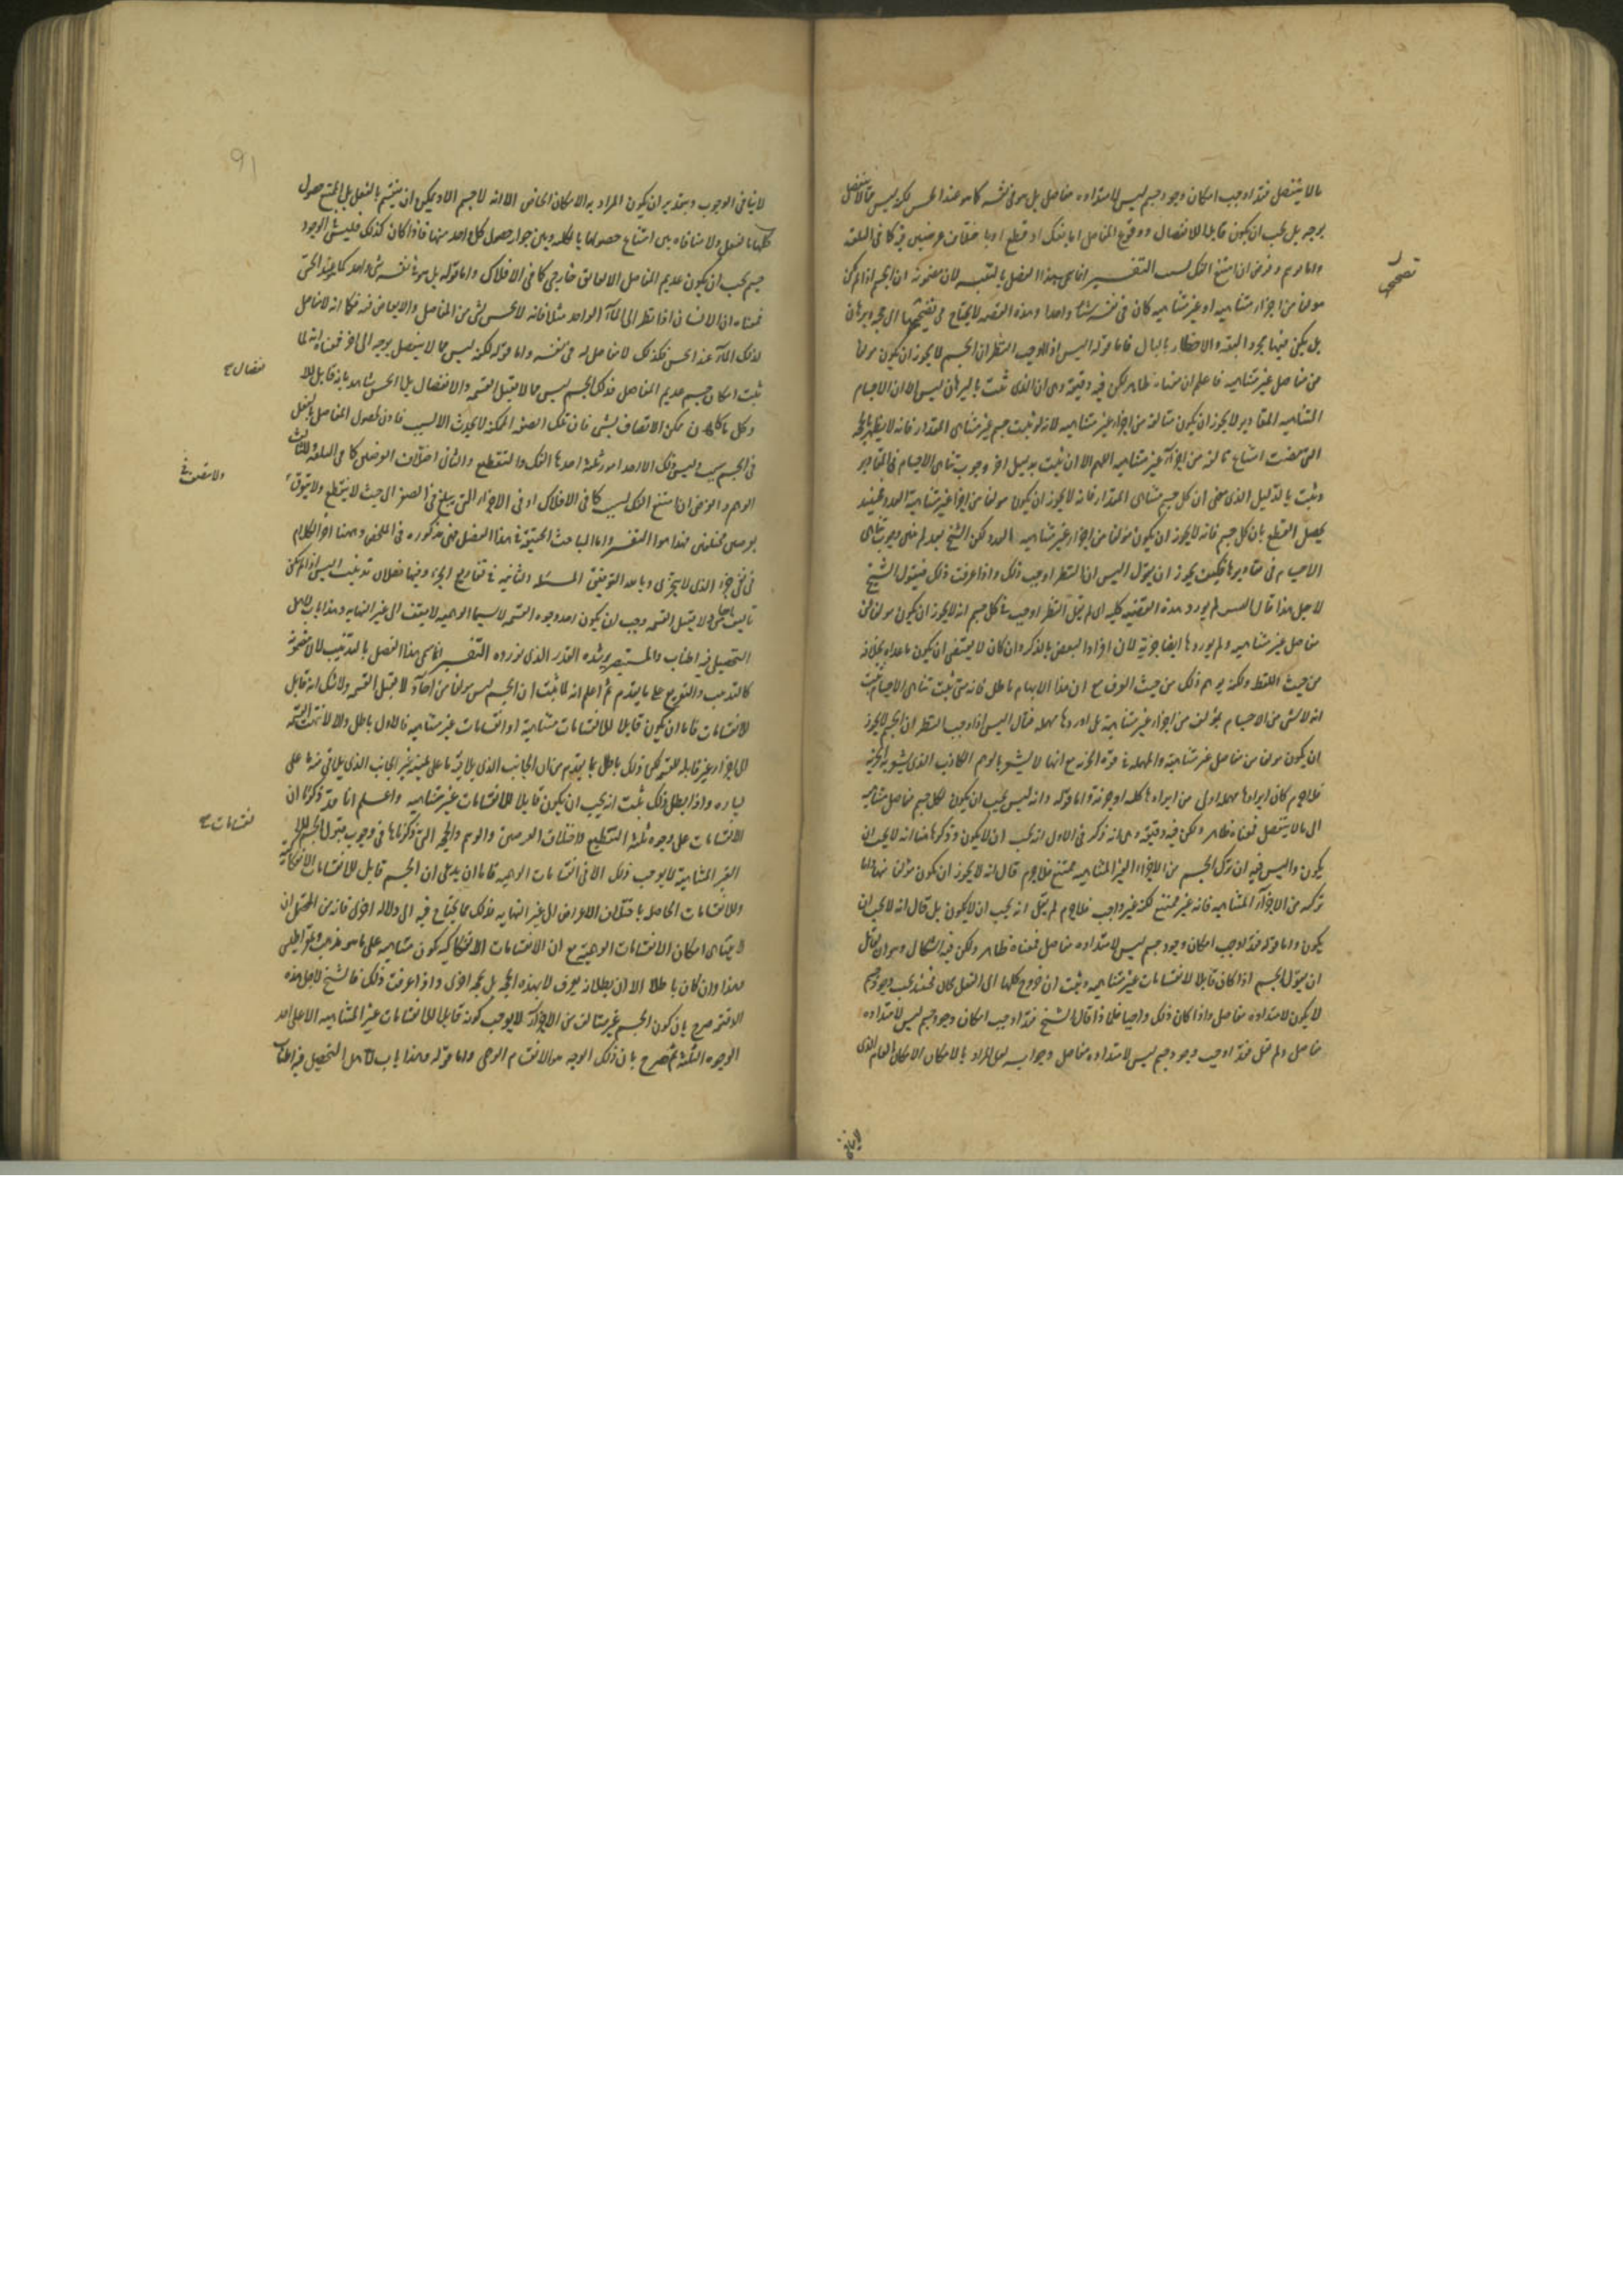 مالا ينفصل فقد اوجب امكان وجود جسم ليس لامتداده مفاصل بل هو فى نفسه كما هو عند الحس لكنه ليس مما لا ينفصل
بوجه بل يجب ان يكون قابلا للانفصال ووقوع المفاصل اما بفك او قطع او باختلاف عرضين فيه كما فى البلقة
واما بوهم وفرض ان امتنع الفك لسبب التفسير انما سمى هذا الفصل بالتنبيه لان مضمونه ان الجسم اذا لم يكن
مولفا من اجزاء متناهيه او غير متناهيه كان فى نفسه شيئا واحدا وهذه القضية لا يحتاج فى تصحيحها الى حجة وبرهان
تصحيحها
بل يكفى فيها مجرد التنبيه والاخطار بالبال فاما قوله اليس اذا اوجب النظر ان الجسم لا يجوز ان يكون مولفا
من مفاصل غير متناهيه فاعلم ان معناه ظاهر لكن فيه دقيقة وهى ان الذى ثبت بالبرهان ليس الا ان الاجسام
المتناهيه المقادير لا يجوز ان يكون متالفة من اجزاء غير متناهيه لانه لو ثبت جسم غير متناهى المقدار فانه لا يظهر بالحجة
التى مضت امتناع تالفه من اجزاء غير متناهيه اللهم الا ان يثبت بدليل اخر وجوب تناهى الاجسام فى المقادير
ويثبت بالدليل الذى مضى ان كل جسم متناهى المقدار فانه لا يجوز ان يكون مولفا من اجزا غير متناهية العدد فحينئذ
يحصل القطع بان كل جسم فانه لا يجوز ان يكون مؤلفا من اجزاء غير متناهيه العدد لكن الشيخ بعد لم يبين وجوب تناهى
الاجسام فى مقاديرها فكيف يجوز ان يقول اليس ان النظر اوجب ذلك واذا عرفت ذلك فنقول الشيخ
لاجل هذا قال اليس لم يورد هذه القضية كليه اى لم يقل النظر اوجب فى كل جسم انه لا يجوز ان يكون مولفا من
مفاصل غير متناهيه ولم يوردها ايضا جزئية لان افراد البعض بالذكر وان كان لا يقتضى ان يكون ما عداه بخلافه
من حيث اللفظ ولكنه يوهم ذلك من حيث العرف مع ان هذا الايهام باطل فانه متى ثبت تناهى الاجسام ثبت
انه لا شى من الاجسام بمؤلف من اجزاء غير متناهية بل اوردها مهمله فقال اليس اذا اوجب النظر ان الجسم لا يجوز
ان يكون مولفا من مفاصل غير متناهية والمهملة فى قوة الجزئيه مع انها لا يشعر بالوهم الكاذب الذى يشعر به الجزئية
فلا جرم كان ايرادها مهملة اولى من ايرادها كلية او جزئية واما قوله وانه ليس يجب ان يكون لكل جسم مفاصل متناهيه
الى ما لا ينفصل فمعناه ظاهر ولكن فيه دقيقة وهى انه ذكر فى الاول انه يجب ان لا يكون وذكر هاهنا انه لا يجب ان
يكون واليس فيه ان تركب الجسم من الاجزاء الغير المتناهيه ممتنع فلا جرم قال انه لا يجوز ان يكون مؤلفا منها واما
تركبه من الاجزاء المتناهيه فانه غير ممتنع لكنه غير واجب فلا جرم لم يقل انه يجب ان لا يكون بل قال انه لا يجب ان
يكون واما قوله فقد اوجب امكان وجود جسم ليس لامتداده مفاصل فمعناه ظاهر ولكن فيه اشكال وهو ان لقائل
ان يقول الجسم اذا كان قابلا لانقسامات غير متناهيه وثبت ان خروج كلها الى الفعل محال فحينئذ يجب وجود جسم
لا يكون لامتداده مفاصل واذا كان ذلك واجبا فلماذا قال الشيخ فقد اوجب امكان وجود جسم ليس لامتداده
مفاصل ولم يقل فقد اوجب وجود جسم ليس لامتداده مفاصل وجوابه لعل المراد بالامكان الامكان العام الذى
لا ينافى
91
لا ينافى الوجوب وبتقدير ان يكون المراد به الامكان الخاص الا انه لا جسم الا ويمكن ان ينقسم بالفعل بل الممتنع حصول
كلها بالفعل ولا منافاه بين امتناع حصولها بالكلية وبين جواز حصول كل واحد منها فاذا كان كذلك فليس شى من الوجود
جسم يجب ان يكون عديم المفاصل الا لعائق خارجى كما فى الافلاك واما قوله بل هو فى نفسه شى واحد كما هو عند الحس
فمعناه ان الانسان اذا نظر الى الماء الواحد مثلا فانه لا يحس بشى من المفاصل والابعاض فيه فكما انه لا مفاصل
لذلك الماء عند الحس فكذلك لا مفاصل له فى نفسه واما قوله لكنه ليس مما لا ينفصل بوجه الى اخره فمعناه انه لما
ثبت امكان جسم عديم المفاصل فذلك الجسم ليس مما لا يقبل القسمة والانفصال بل الحس شاهد بانه قابل للا
نفصال صح
وكل ما كان ممكن الاتصاف بشى فان تلك الصفة الممكنة لا يحدث الا لسبب فاذن لحصول المفاصل بالفعل
فى الجسم سبب وليس ذلك الا احد امور ثلثة احدها الفك والتقطيع والثانى اختلاف العرضين كما فى البلقة والثالث
الوهم والفرض اذا امتنع الفك لسبب كما فى الافلاك او فى الاجزاء التى يبلغ فى الصغر الى حيث لا ينقطع ولا يتفرق
بوصفين مختلفين فهذا هو التفسير واما المباحث الحقيقية فى هذا الفصل فهى مذكوره فى الملخص وههنا اخر الكلام
فى نفى الجزء الذى لا يتجزى وبالله التوفيق المسئلة الثانيه فى تفاريع الجزء وفيها فصلان تذنيب اليس اذا لم يكن
تاليف ما حتى لا يقبل القسمة وجب ان يكون احد وجوه القسمة لا سيما الوهميه لا يقف الى غير النهايه وهذا باب لاهل
التحصيل فيه اطناب والمستبصر يرشده القدر الذى نورده التفسير انما سمى هذا الفصل بالتذنيب لان مضمونه
كالتذنيب والتفريع على ما تقدم ثم اعلم انه لما ثبت ان الجسم ليس مولفا من اجزاء لا يقبل القسمه ولا شك انه قابل
للانقسامات فاما ان يكون قابلا للانقسامات متناهية او انقسامات غير متناهيه فالاول باطل والا لانتهت القسمة
الى اجزاء غير قابله للقسمة لكن ذلك باطل بما تقدم من ان الجانب الذى يلاقى ما على يمينه غير الجانب الذى يلاقى منه ما على
يساره واذا بطل ذلك ثبت انه يجب ان يكون قابلا للانقسامات غير متناهيه واعلم انا قد ذكرنا ان
الانقسامات على وجوه ثلثة التقطيع واختلاف العرضين والوهم والحجة التى ذكرناها فى وجوب قبول الجسم للا
نقسامات صح
الغير المتناهية لا يوجب ذلك الا فى انقسامات الوهميه فاما ان يدعى ان الجسم قابل للانقسامات الانفكاكية
وللانقسامات الحاصلة باختلاف الاعراض الى غير النهايه فذلك مما يحتاج فيه الى دلاله اخرى فانه من المحتمل ان
لا يتناهى امكان الانقسامات الوهمية مع ان الانقسامات الانفكاكيه يكون متناهيه على ما هو مذهب ذيمقراطيس
وهذا وان كان باطلا الا ان بطلانه يعرف لا بهذه الحجة بل بحجة اخرى واذا عرفت ذلك فالشيخ لاجل هذه
الدقيقة صرح بان كون الجسم غير متالف من الاجزاء لا يوجب كونه قابلا للانقسامات غير المتناهيه الا على احد
الوجوه الثلثة ثم صرح بان ذلك الوجه هو الانقسام الوهمى واما قوله وهذا باب لاهل التحصيل فيه اطناب